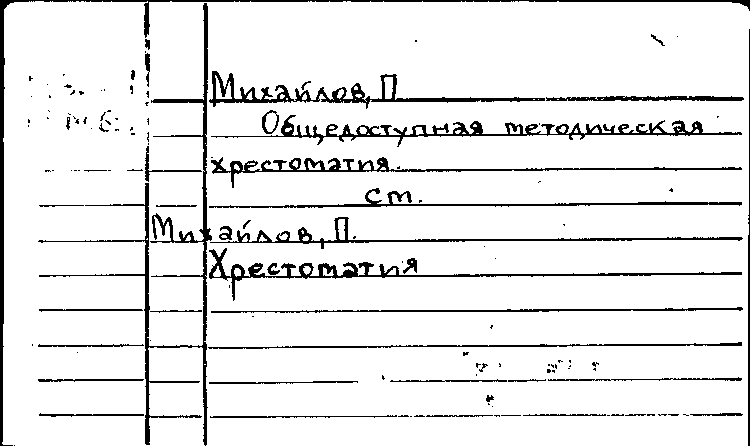 Михайлов, П
Общедоступная методическая
хрестоматия.
ст.
Михайлов, П.
Хрестоматия